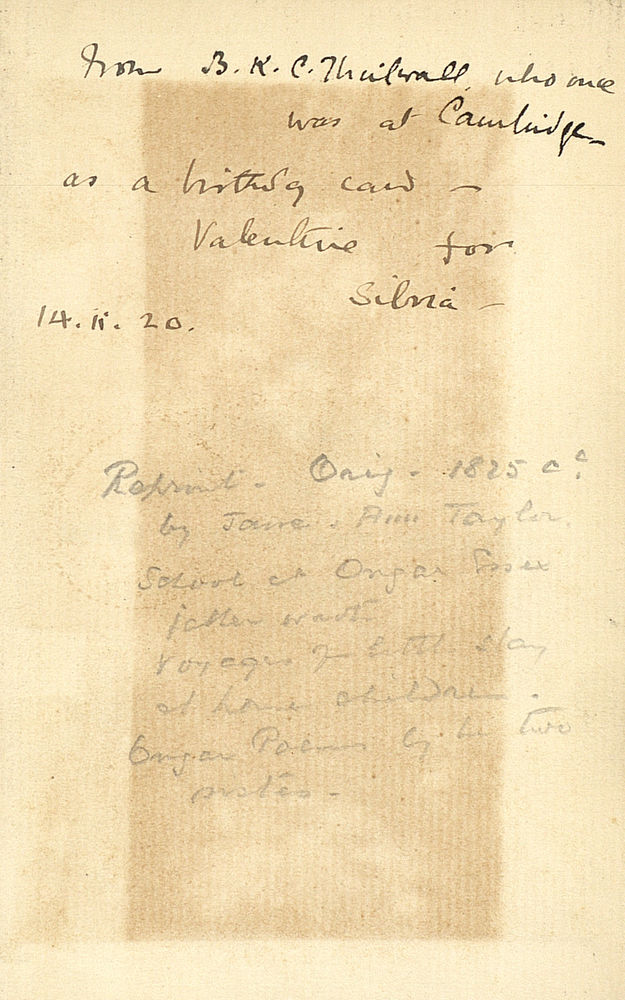 from B. K. C. Thirlwall, who once
was at Cambridge
as a birthday card –
Valentine for
Silvia –
14.ii.20.
Reprint. Orig. 1825 cᵃ
by Jane & Ann Taylor.
School at Ongar Essex
father wrote
Voyages of Little stay
at home children.
Ongar Poems by the two
sisters –